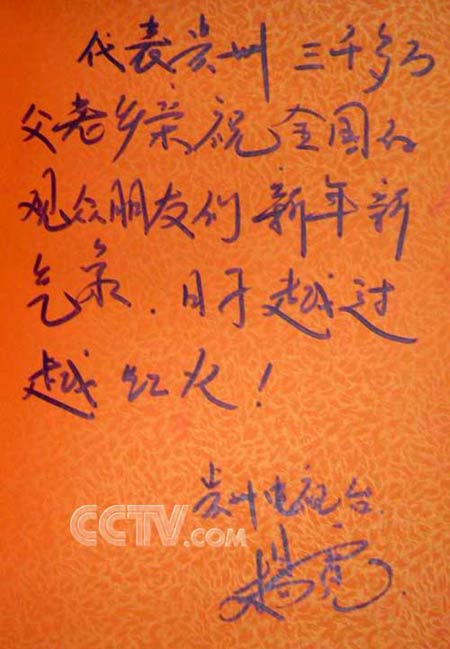 代表贵州三千多万
父老乡亲祝全国的
观众朋友们新年新
气象.日子越过
越红火!
贵州电视台
CCTV.com